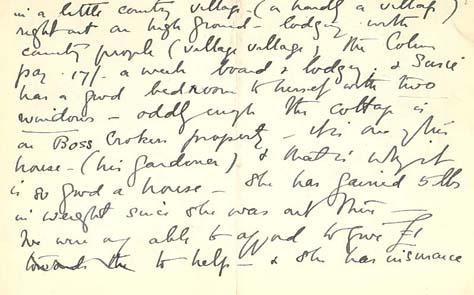 in a little country village – (a hardly a village)
right out on high ground – lodging with
country people (village village), the Colum
pay 17/- a week board & lodging & Susie
has a good bedroom to herself with two
windows – oddly enough the cottage is
on Boss Crokers property – it is one of his
house – (his gardener) & that is why it
is so good a house – she has gained 5 lbs
in weight since she was out there –
We were able to afford to give £1
towards the to help – & she has insurance